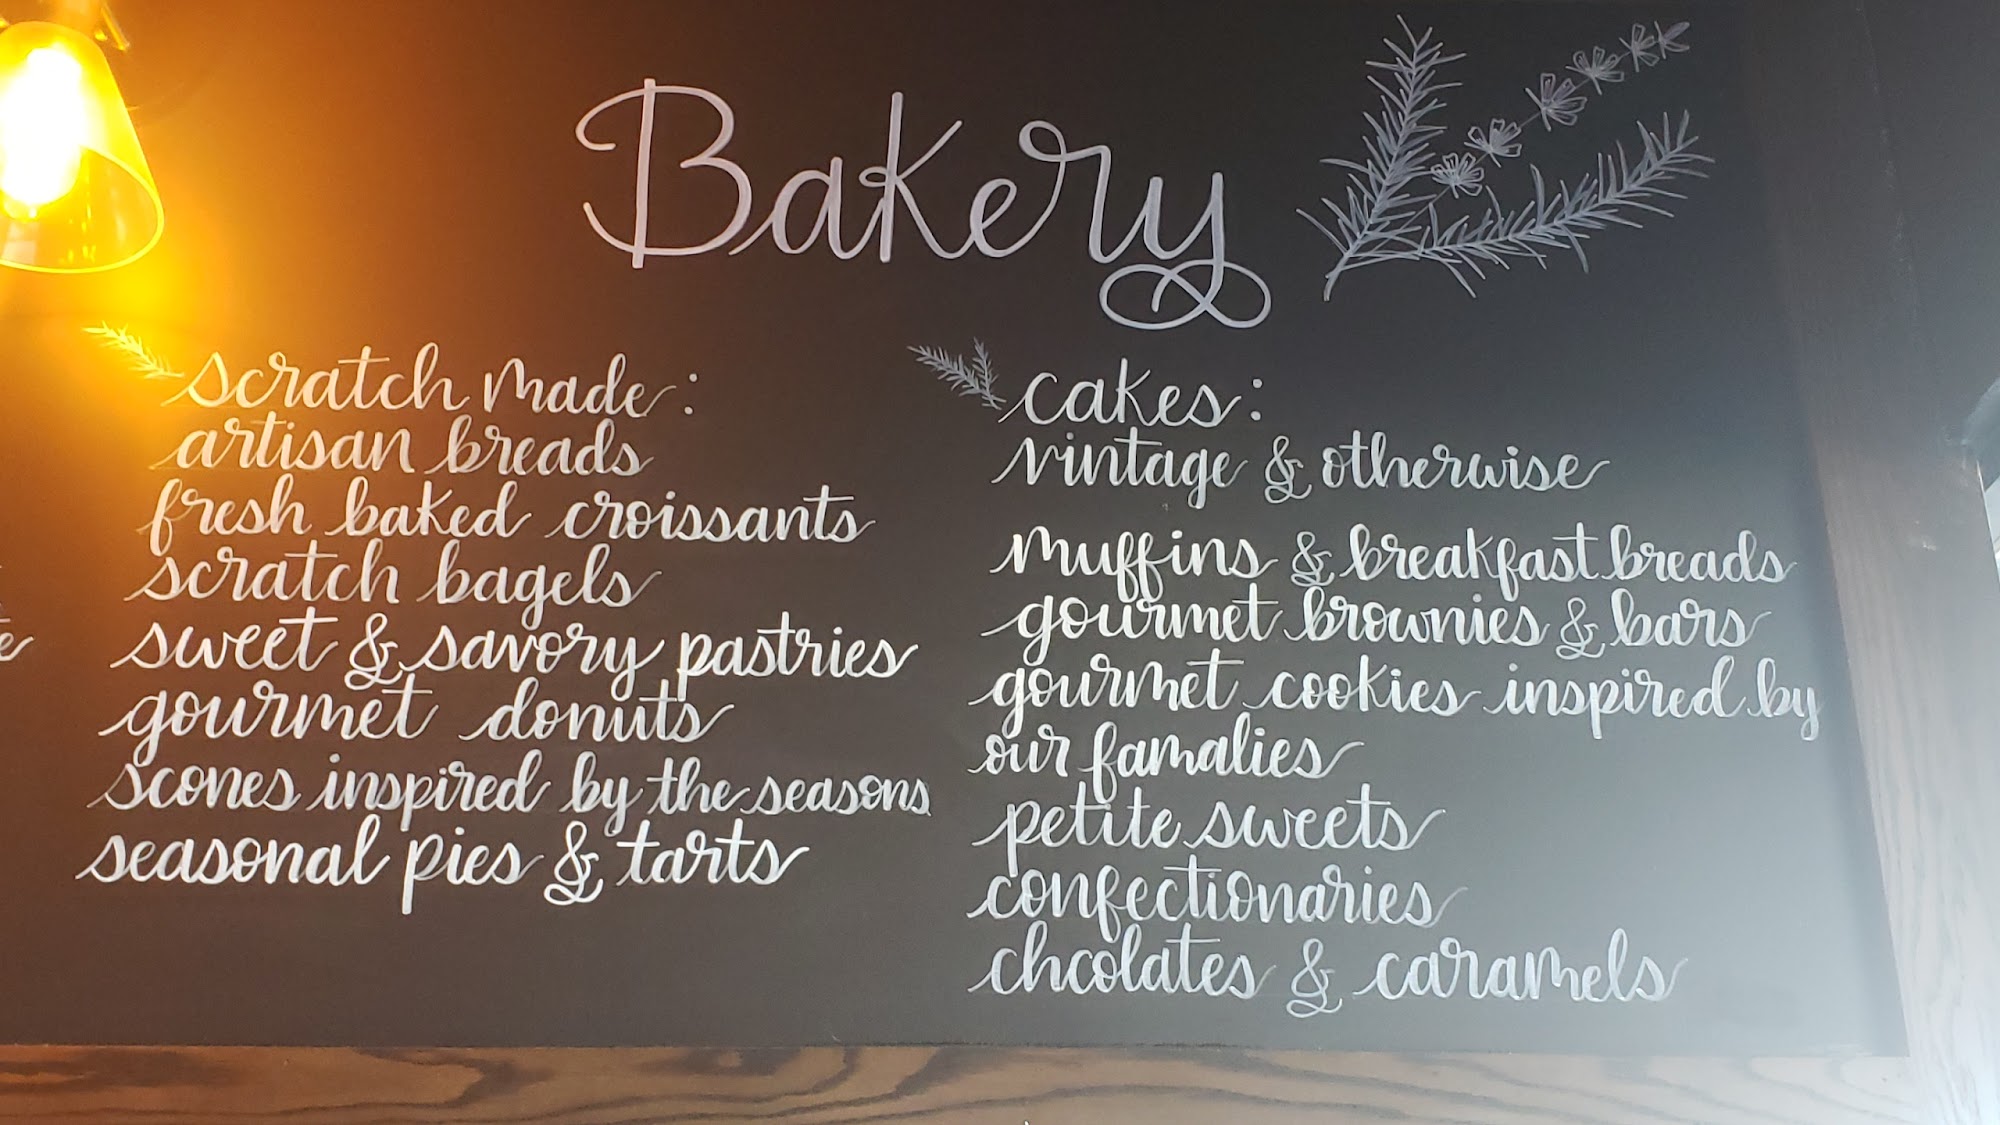 Bakery
scratch made:
artisan breads
fresh baked croissants
scratch bagels
sweet & savory pastries
gourmet donuts
scones inspired by the seasons
seasonal pies & tarts
cakes:
vintage & otherwise
muffins & breakfast breads
gourmet brownies & bars
gourmet cookies inspired by
our famalies
petite sweets
confectionaries
chcolates & caramels